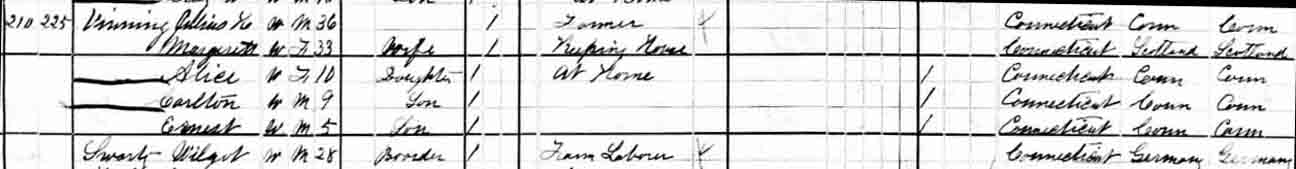 210 225 Vinning Julius H W M 36 1 Farmer Connecticut Conn Conn
Margarett W F 33 Wife 1 Keeping House Connecticut Scotland Scotland
Alice W F 10 Daughter 1 At Home 1 Connecticut Conn Conn
Carlton W M 9 Son 1 1 Connecticut Conn Conn
Ernest W M 5 Son 1 1 Connecticut Conn Conn
Swartz W M 28 Boarder 1 Farm Laborer Connecticut Germany Germany